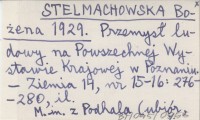 STELMACHOWSKA Bo-
żena 1929. Przemysł lu-
dowy na Powszechnej Wy-
stawie Krajowej w Poznaniu
– Ziemia 19, nr 15-16: 276-
-280, il.
M. in. z Podhala